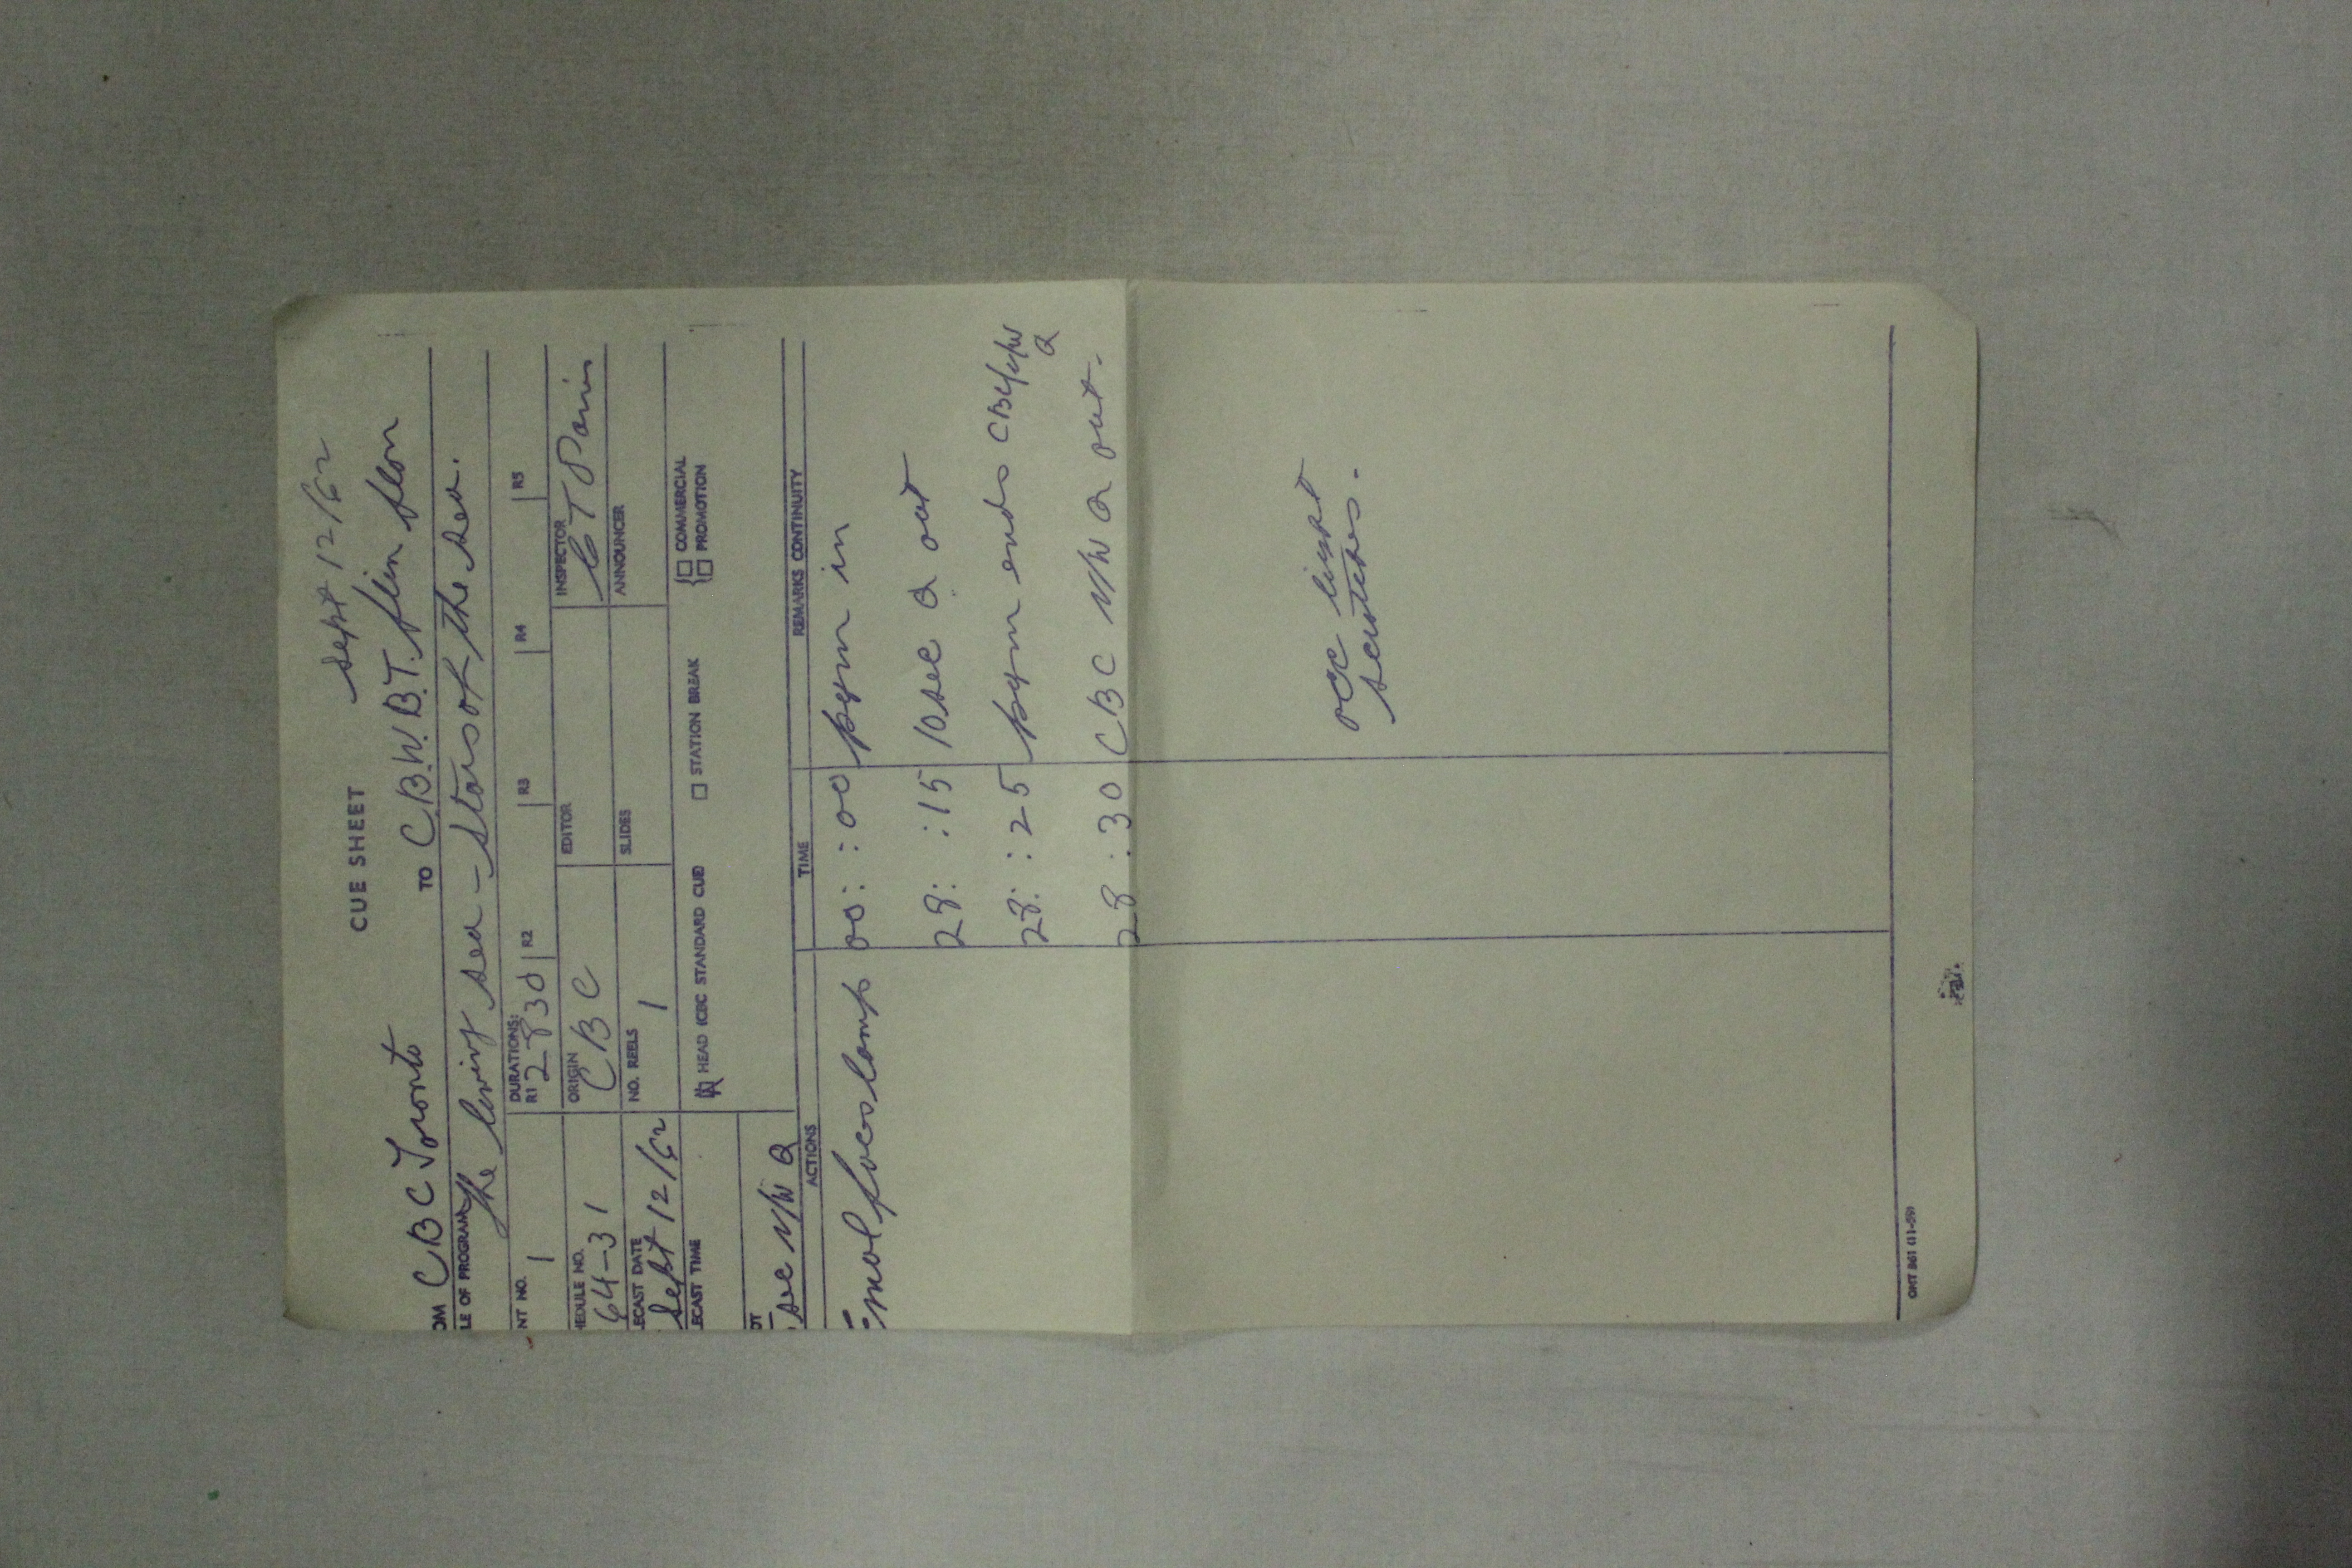 Sept 12/62
CUE SHEET
OM CBC Toronto TO C.B.W.B.T. flin flon
LE OF PROGRAM The living sea - stars of the sea.
NT NO. 1 DURATIONS: R1 2830 R2 R3 R4 R5
HEDULE NO. 64-31 ORIGIN CBC EDITOR INSPECTOR
LECAST DATE Sept 12/62 NO. REELS 1 SLIDES ANNOUNCER
LECAST TIME HEAD (CBC STANDARD CUE) STATION BREAK { COMMERCIAL
PROMOTION
OT
sec V/W Q
ACTIONS TIME REMARKS CONTINUITY
00: :00 pgm in
28: :15 10sec Q out
28: :25 pgm ends CBC V/W
Q
28 :30 CBC V/W Q out.
occ light
scratches.
ONT 861 (11-59)